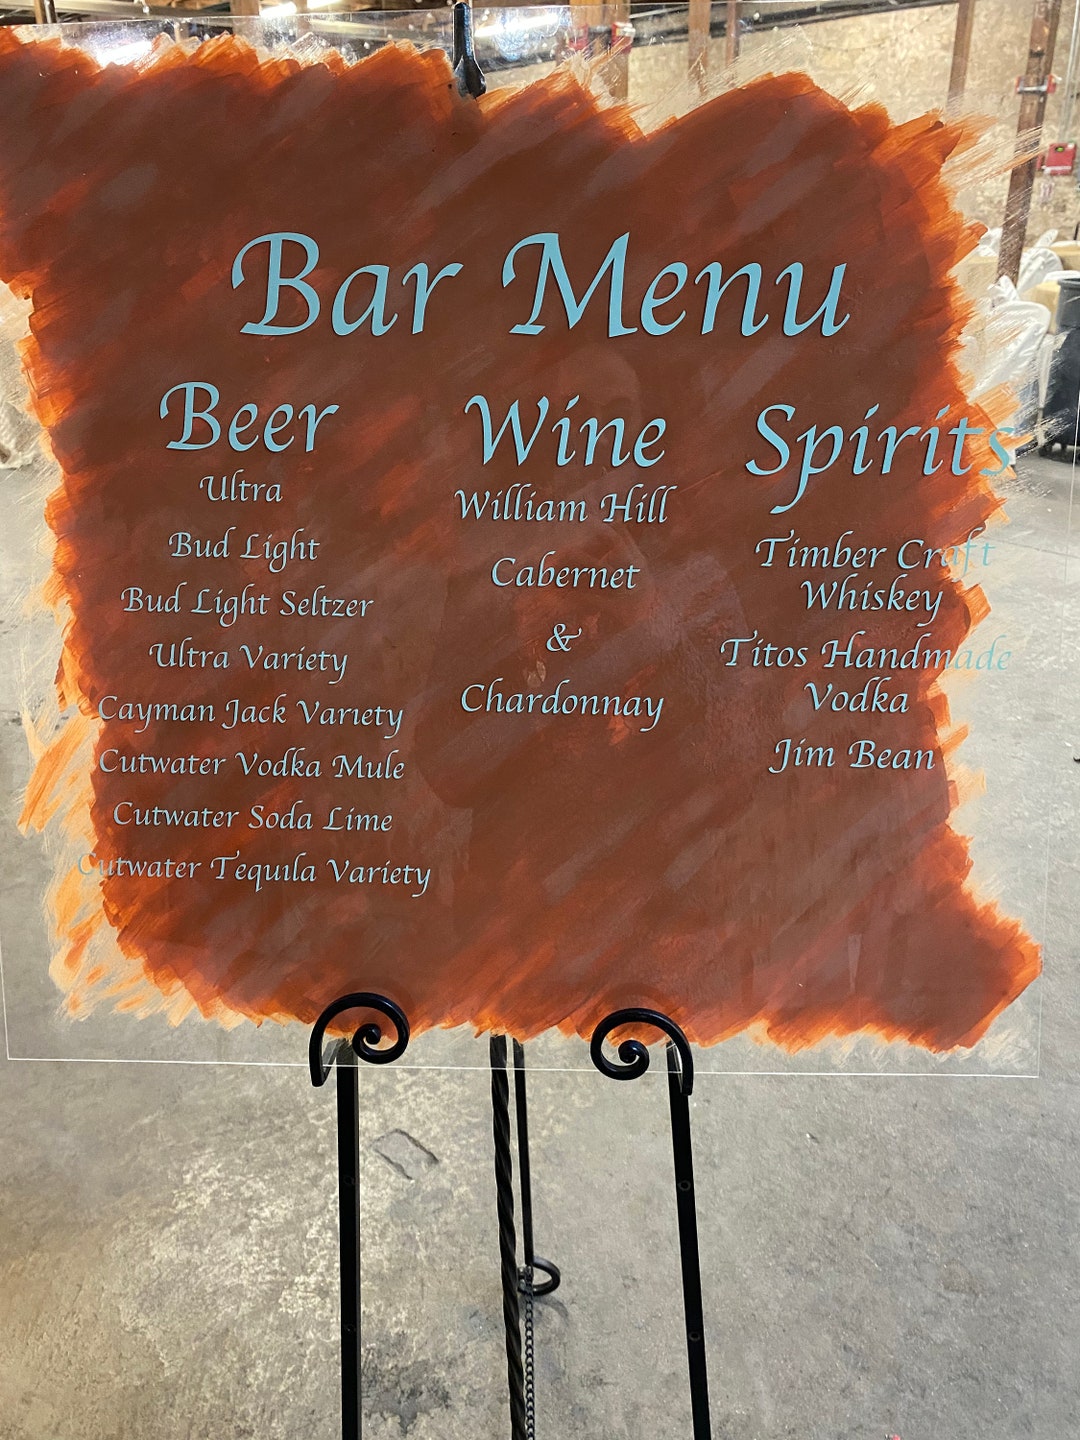 Bar Menu
Beer
Ultra
Bud Light
Bud Light Seltzer
Ultra Variety
Cayman Jack Variety
Cutwater Vodka Mule
Cutwater Soda Lime
Cutwater Tequila Variety
Wine
William Hill
Cabernet
&
Chardonnay
Spirits
Timber Craft
Whiskey
Titos Handmade
Vodka
Jim Bean